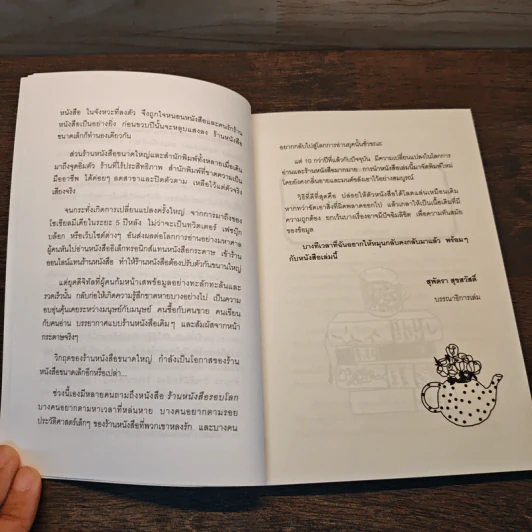 หนังสือ ในจังหวะที่ลงตัว จึงถูกใจหนอนหนังสือและคนรักร้าน
หนังสือเป็นอย่างยิ่ง ก่อนขวบปีนั้นจะหลุบแสงลง ร้านหนังสือ
ขนาดเล็กก็ทำนองเดียวกัน
ส่วนร้านหนังสือขนาดใหญ่และสำนักพิมพ์ทั้งหลายเมื่อเดิน
มาถึงจุดอิ่มตัว ร้านที่ไร้ประสิทธิภาพ สำนักพิมพ์ที่ขาดความเป็น
มืออาชีพ ได้ค่อยๆ ลดสาขาและปิดตัวตาม เหลือไว้แค่ตัวจริง
เสียงจริง
จนกระทั่งเกิดการเปลี่ยนแปลงครั้งใหญ่ จากการมาถึงของ
โซเชียลมีเดียในระยะ 5 ปีหลัง ไม่ว่าจะเป็นทวิตเตอร์ เฟซบุ๊ก
บล็อก หรือเว็บไซต์ต่างๆ อันส่งผลต่อโลกการอ่านอย่างมหาศาล
ผู้คนหันไปอ่านหนังสืออิเล็กทรอนิกส์แทนหนังสือกระดาษ เข้าร้าน
ออนไลน์แทนร้านหนังสือ ทำให้ร้านหนังสือต้องปรับตัวขนานใหญ่
แต่ยุคดิจิทัลที่ผู้คนก้มหน้าเสพข้อมูลอย่างทะลักทะล้นและ
รวดเร็วนั้น กลับก่อให้เกิดความรู้สึกที่ขาดหายบางอย่างไป เป็นความ
อบอุ่นคุ้นเคยระหว่างมนุษย์กับมนุษย์ คนซื้อกับคนขาย คนเขียน
กับคนอ่าน บรรยากาศแบบร้านหนังสือเดิมๆ และสัมผัสจากหน้า
กระดาษจริงๆ
วิกฤตของร้านหนังสือขนาดใหญ่ กำลังเป็นโอกาสของร้าน
หนังสือขนาดเล็กอีกหรือเปล่า...
ช่วงนี้เองมีหลายคนถามถึงหนังสือ ร้านหนังสือรอบโลก
บางคนอยากตามหาเวลาที่หล่นหาย บางคนอยากตามรอย
ประวัติศาสตร์เล็กๆ ของร้านหนังสือที่พวกเขาหลงรัก และบางคน
อยากกลับไปสู่โลกการอ่านยุคนั้นชั่วขณะ
แต่ 10 กว่าปีที่แล้วกับปัจจุบัน มีความเปลี่ยนแปลงในโลกการ
อ่านและร้านหนังสือมากมาย การนำหนังสือเล่มนี้มาจัดพิมพ์ใหม่
โดยยังคงกลิ่นอายและมนต์ขลังเอาไว้อย่างสมบูรณ์
วิธีที่ดีที่สุดคือ ปล่อยให้ตัวหนังสือได้โลดแล่นเหมือนเดิม
หากทว่าขัดเอาสิ่งที่ผิดพลาดออกไป แล้วเกลาให้เป็นเนื้อเดิมที่มี
ความถูกต้อง ยกเว้นบางเรื่องอาจมีปัจฉิมลิขิต เพื่อความทันสมัย
ของข้อมูล
บางทีเวลาที่ฉันอยากให้หมุนกลับคงกลับมาแล้ว พร้อมๆ
กับหนังสือเล่มนี้
สุพัตรา สุขสวัสดิ์
บรรณาธิการเล่ม